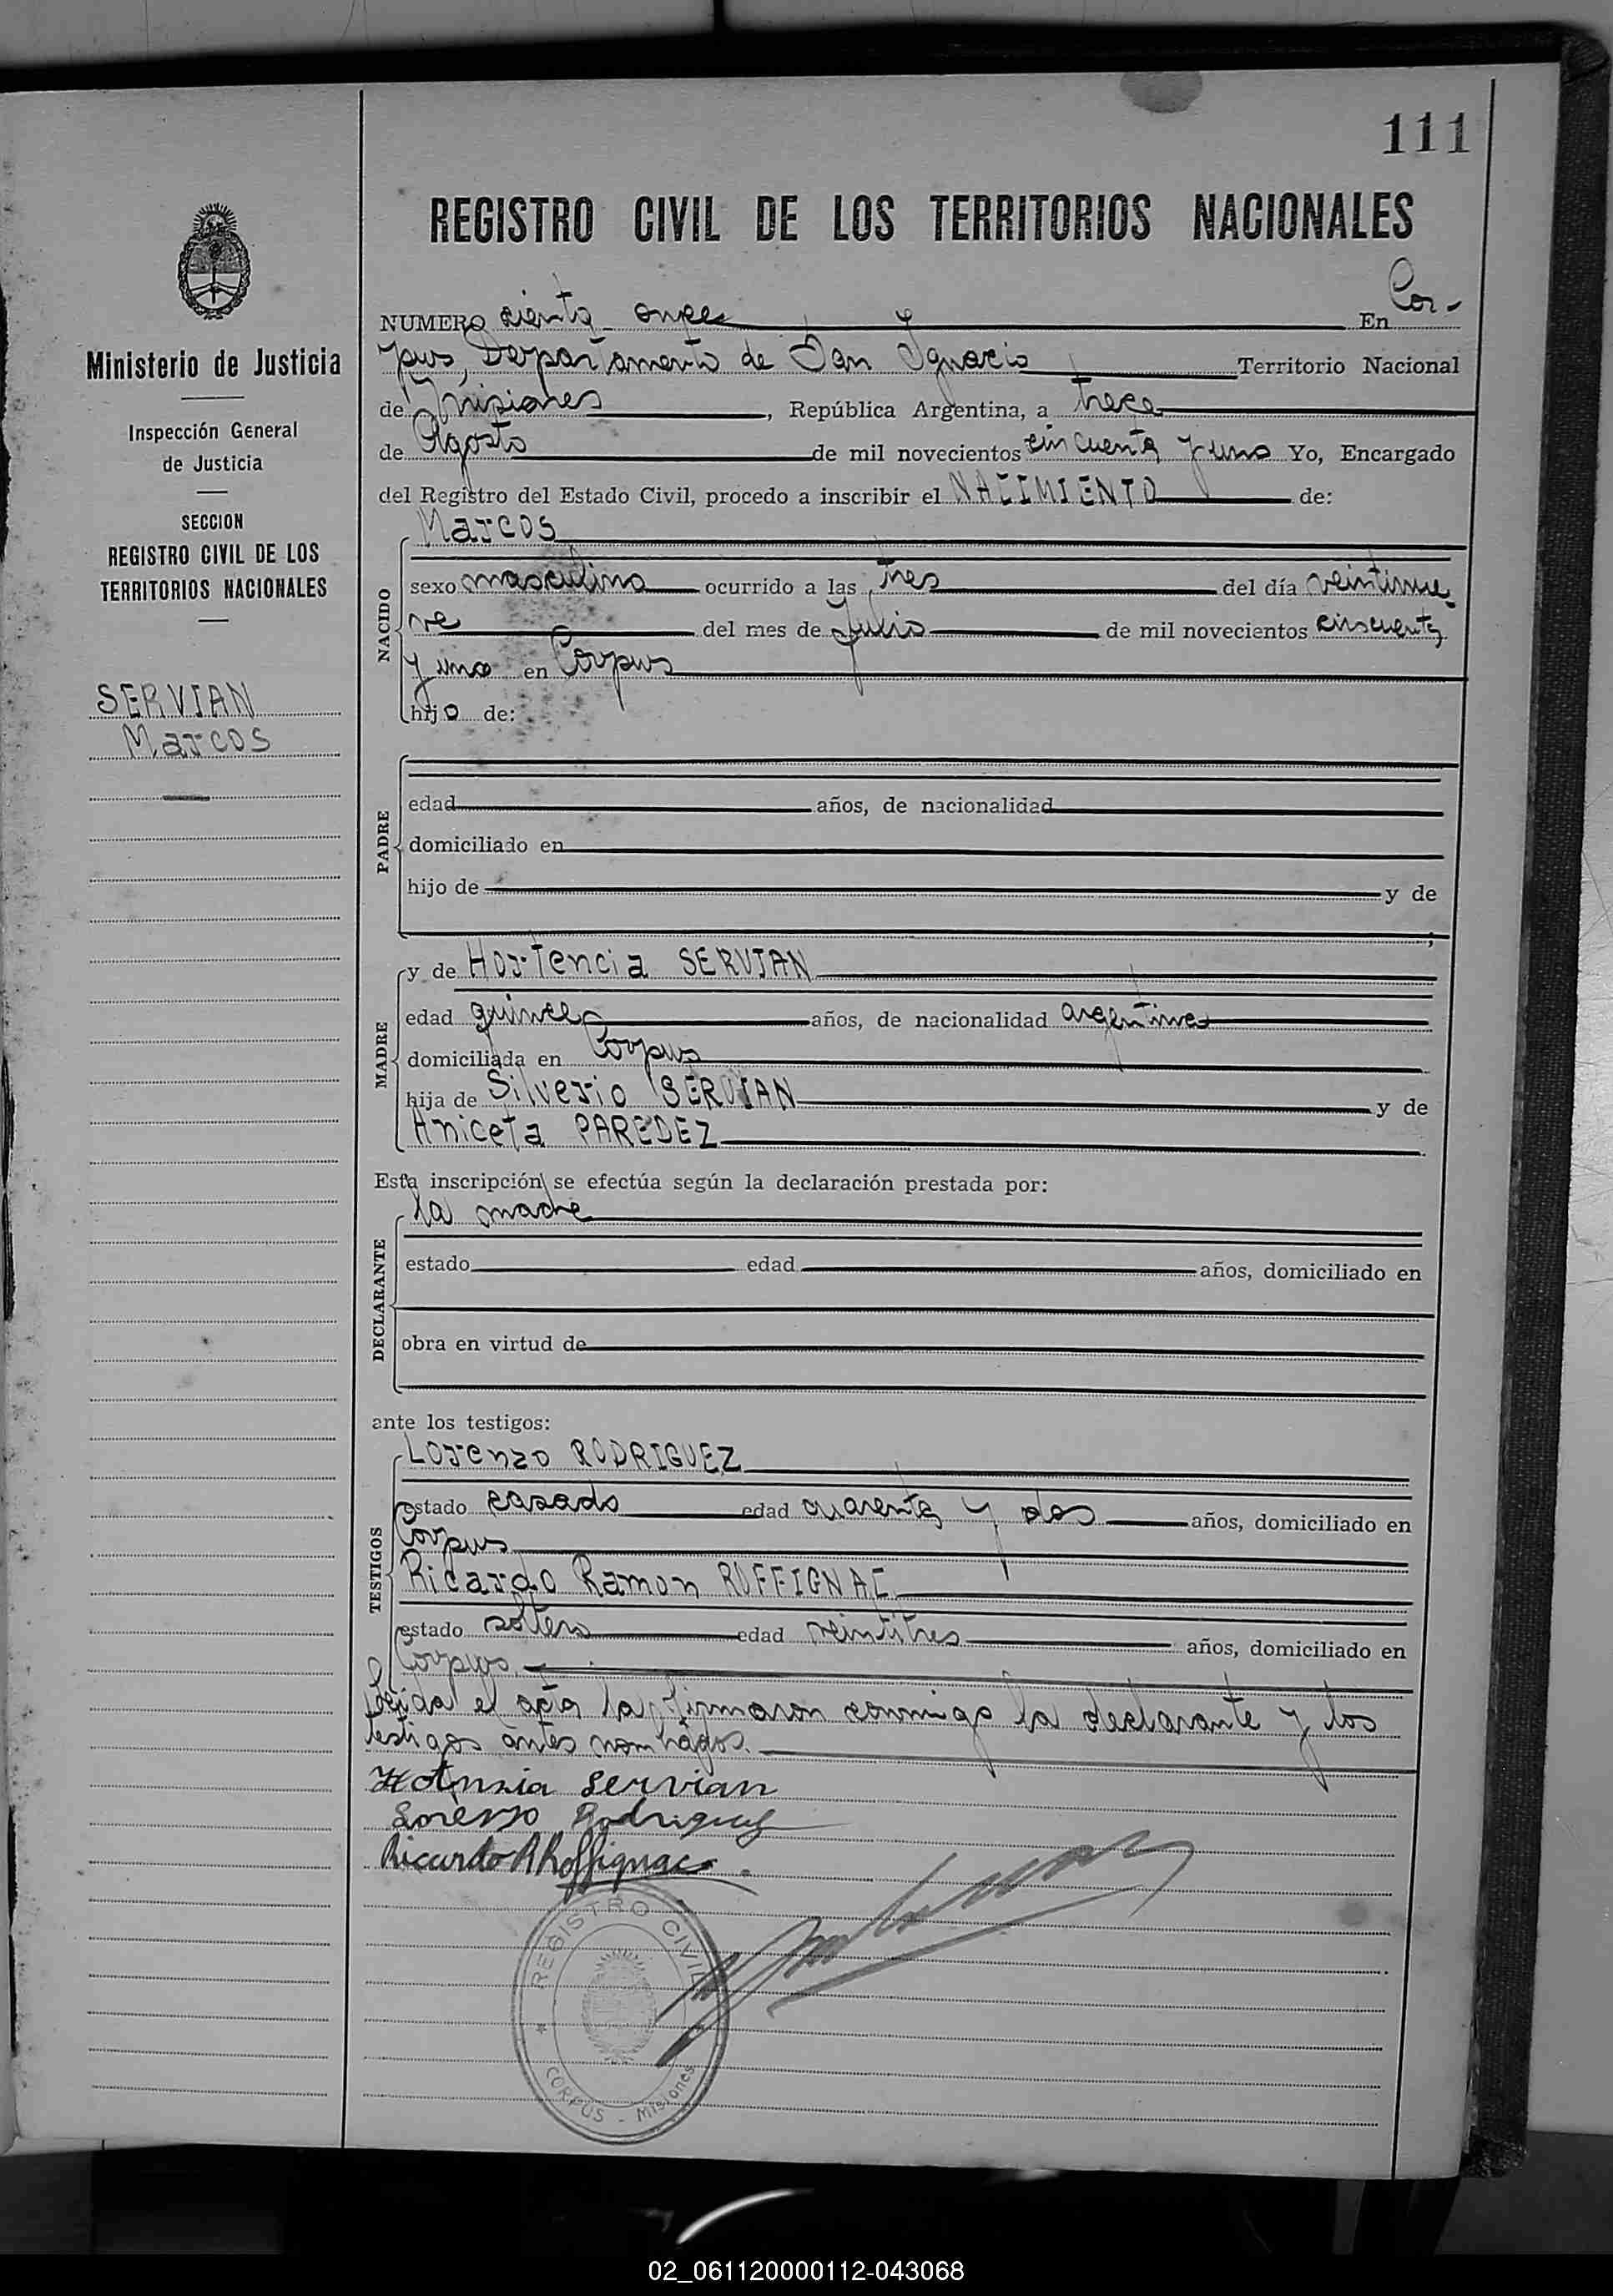 111
REGISTRO CIVIL DE LOS TERRITORIOS NACIONALES
Ministerio de Justicia
Inspección General
de Justicia
SECCION
REGISTRO CIVIL DE LOS
TERRITORIOS NACIONALES
SERVIAN
Marcos
NUMERO ciento once En Cor-
pus, Departamento de San Ignacio Territorio Nacional
de Misiones, República Argentina, a trece
de Agosto de mil novecientos cincuenta y uno Yo, Encargado
del Registro del Estado Civil, procedo a inscribir el NACIMIENTO de:
NACIDO
Marcos
sexo masculino ocurrido a las tres del día veintinue-
ve del mes de Julio de mil novecientos cincuenta
y uno en Corpus
hijo de:
PADRE
edad años, de nacionalidad
domiciliado en
hijo de y de
;
MADRE
y de Hortencia SERVIAN
edad quince años, de nacionalidad argentina
domiciliada en Corpus
hija de Silverio SERVIAN y de
Aniceta PAREDEZ
Esta inscripción se efectúa según la declaración prestada por:
DECLARANTE
la madre
estado edad años, domiciliado en
obra en virtud de
ante los testigos:
TESTIGOS
Lorenzo RODRIGUEZ
estado casado edad cuarenta y dos años, domiciliado en
Corpus
Ricardo Ramon ROFFIGNAC
estado soltero edad veintitres años, domiciliado en
Corpus.
Leida el acta la firmaron conmigo la declarante y los
testigos antes nombrados.
Servian
Lorenso Rodriguez
Ricardo R Roffignac
REGISTRO CIVIL
CORPUS - Misiones
02_061120000112-043068